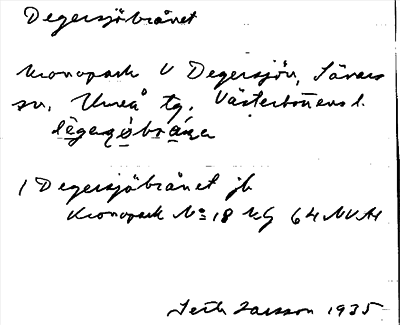 Degersjöbrånet
Kronopark V Degersjön, Sävars
sn, Umeå tg, Västerbottens l.
1 Degersjöbrånet jb
Kronopark No 18 kg 64 NVA4
Seth Larsson 1935